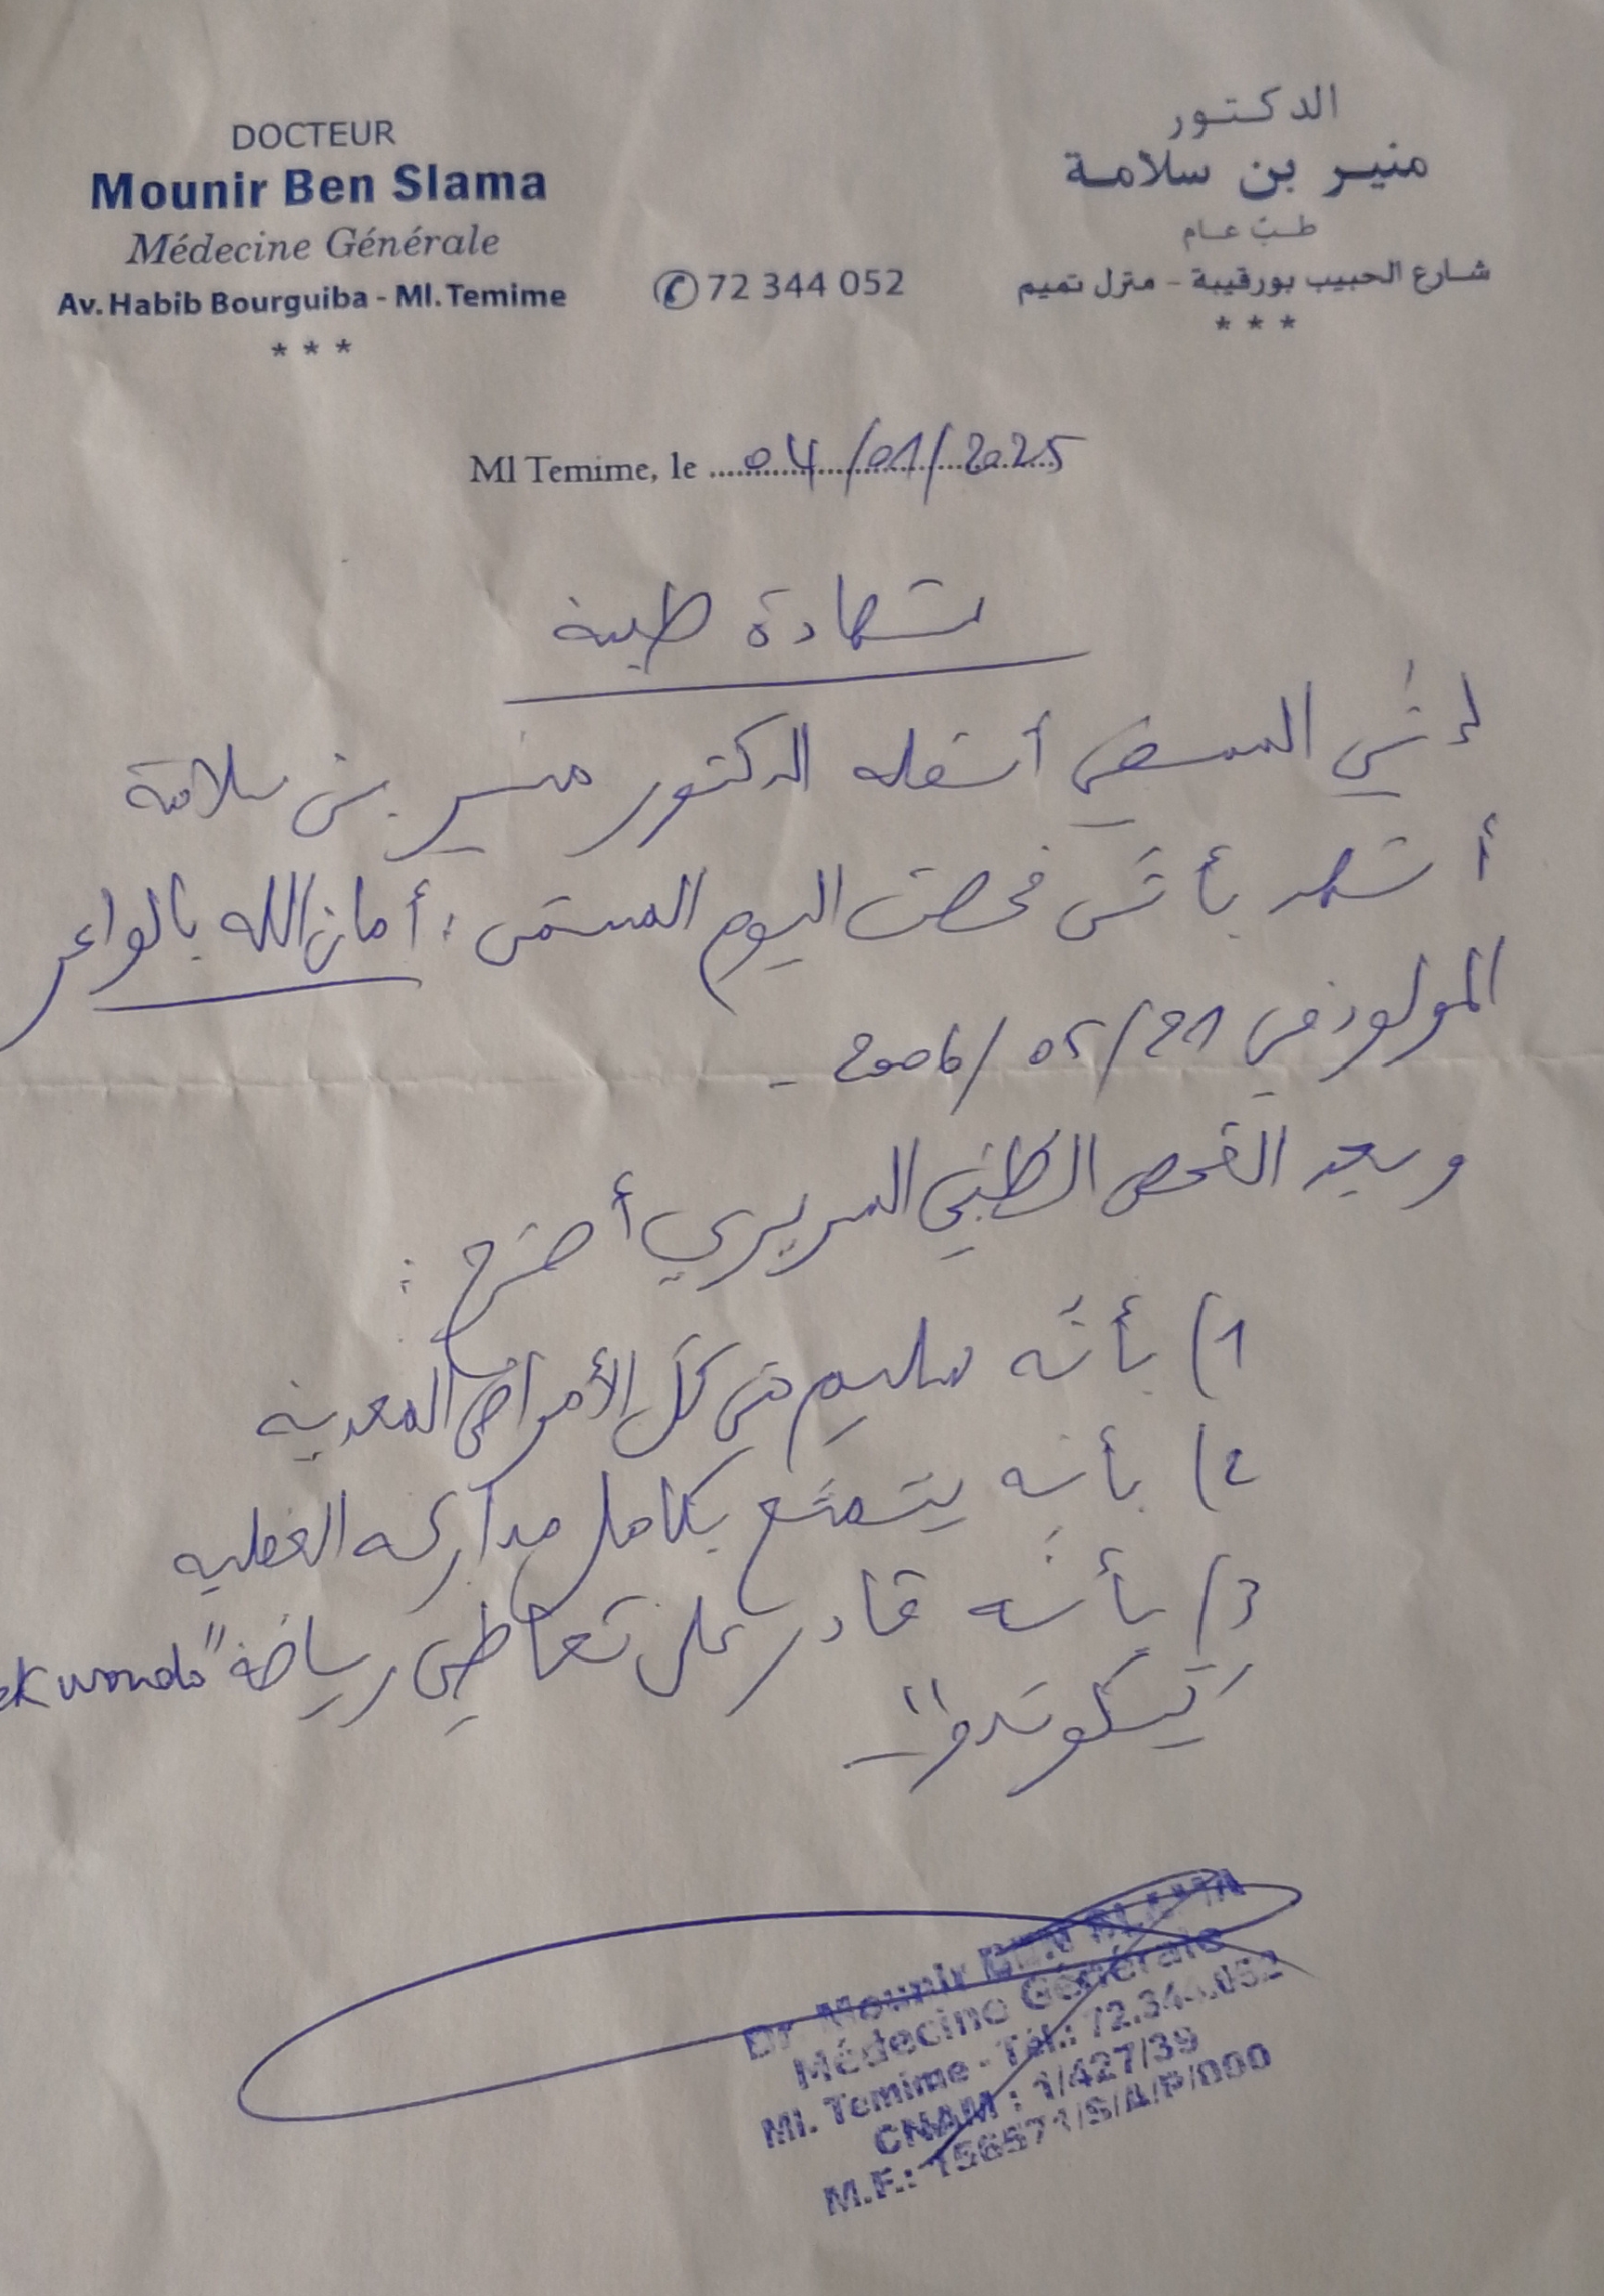 DOCTEUR
Mounir Ben Slama
Médecine Générale
Av. Habib Bourguiba - Ml. Temime
* * *
✆ 72 344 052
الدكتور
منير بن سلامة
طب عام
شارع الحبيب بورقيبة - منزل تميم
* * *
Ml Temime, le 04/01/2025
شهادة طبية
إنّي الممضي أسفله الدكتور منير بن سلامة
أشهد بأنّي فحصت اليوم المسمى : أمان الله بالواعر
المولود في 21/05/2006 -
وبعد الفحص الطبّي السريري أصرح :
1) بأنّه سليم من كلّ الأمراض المعدية
2) بأنه يتمتّع بكامل مداركه العقلية
3) بأنّه قادر على تعاطي رياضة "ekwondo
تيكوندو" -
Dr Mounir BEN SLAMA
Médecine Générale
Ml. Temime - Tél.: 72.344.052
CNAM : 1/427/39
M.F.: 156571/S/A/P/000